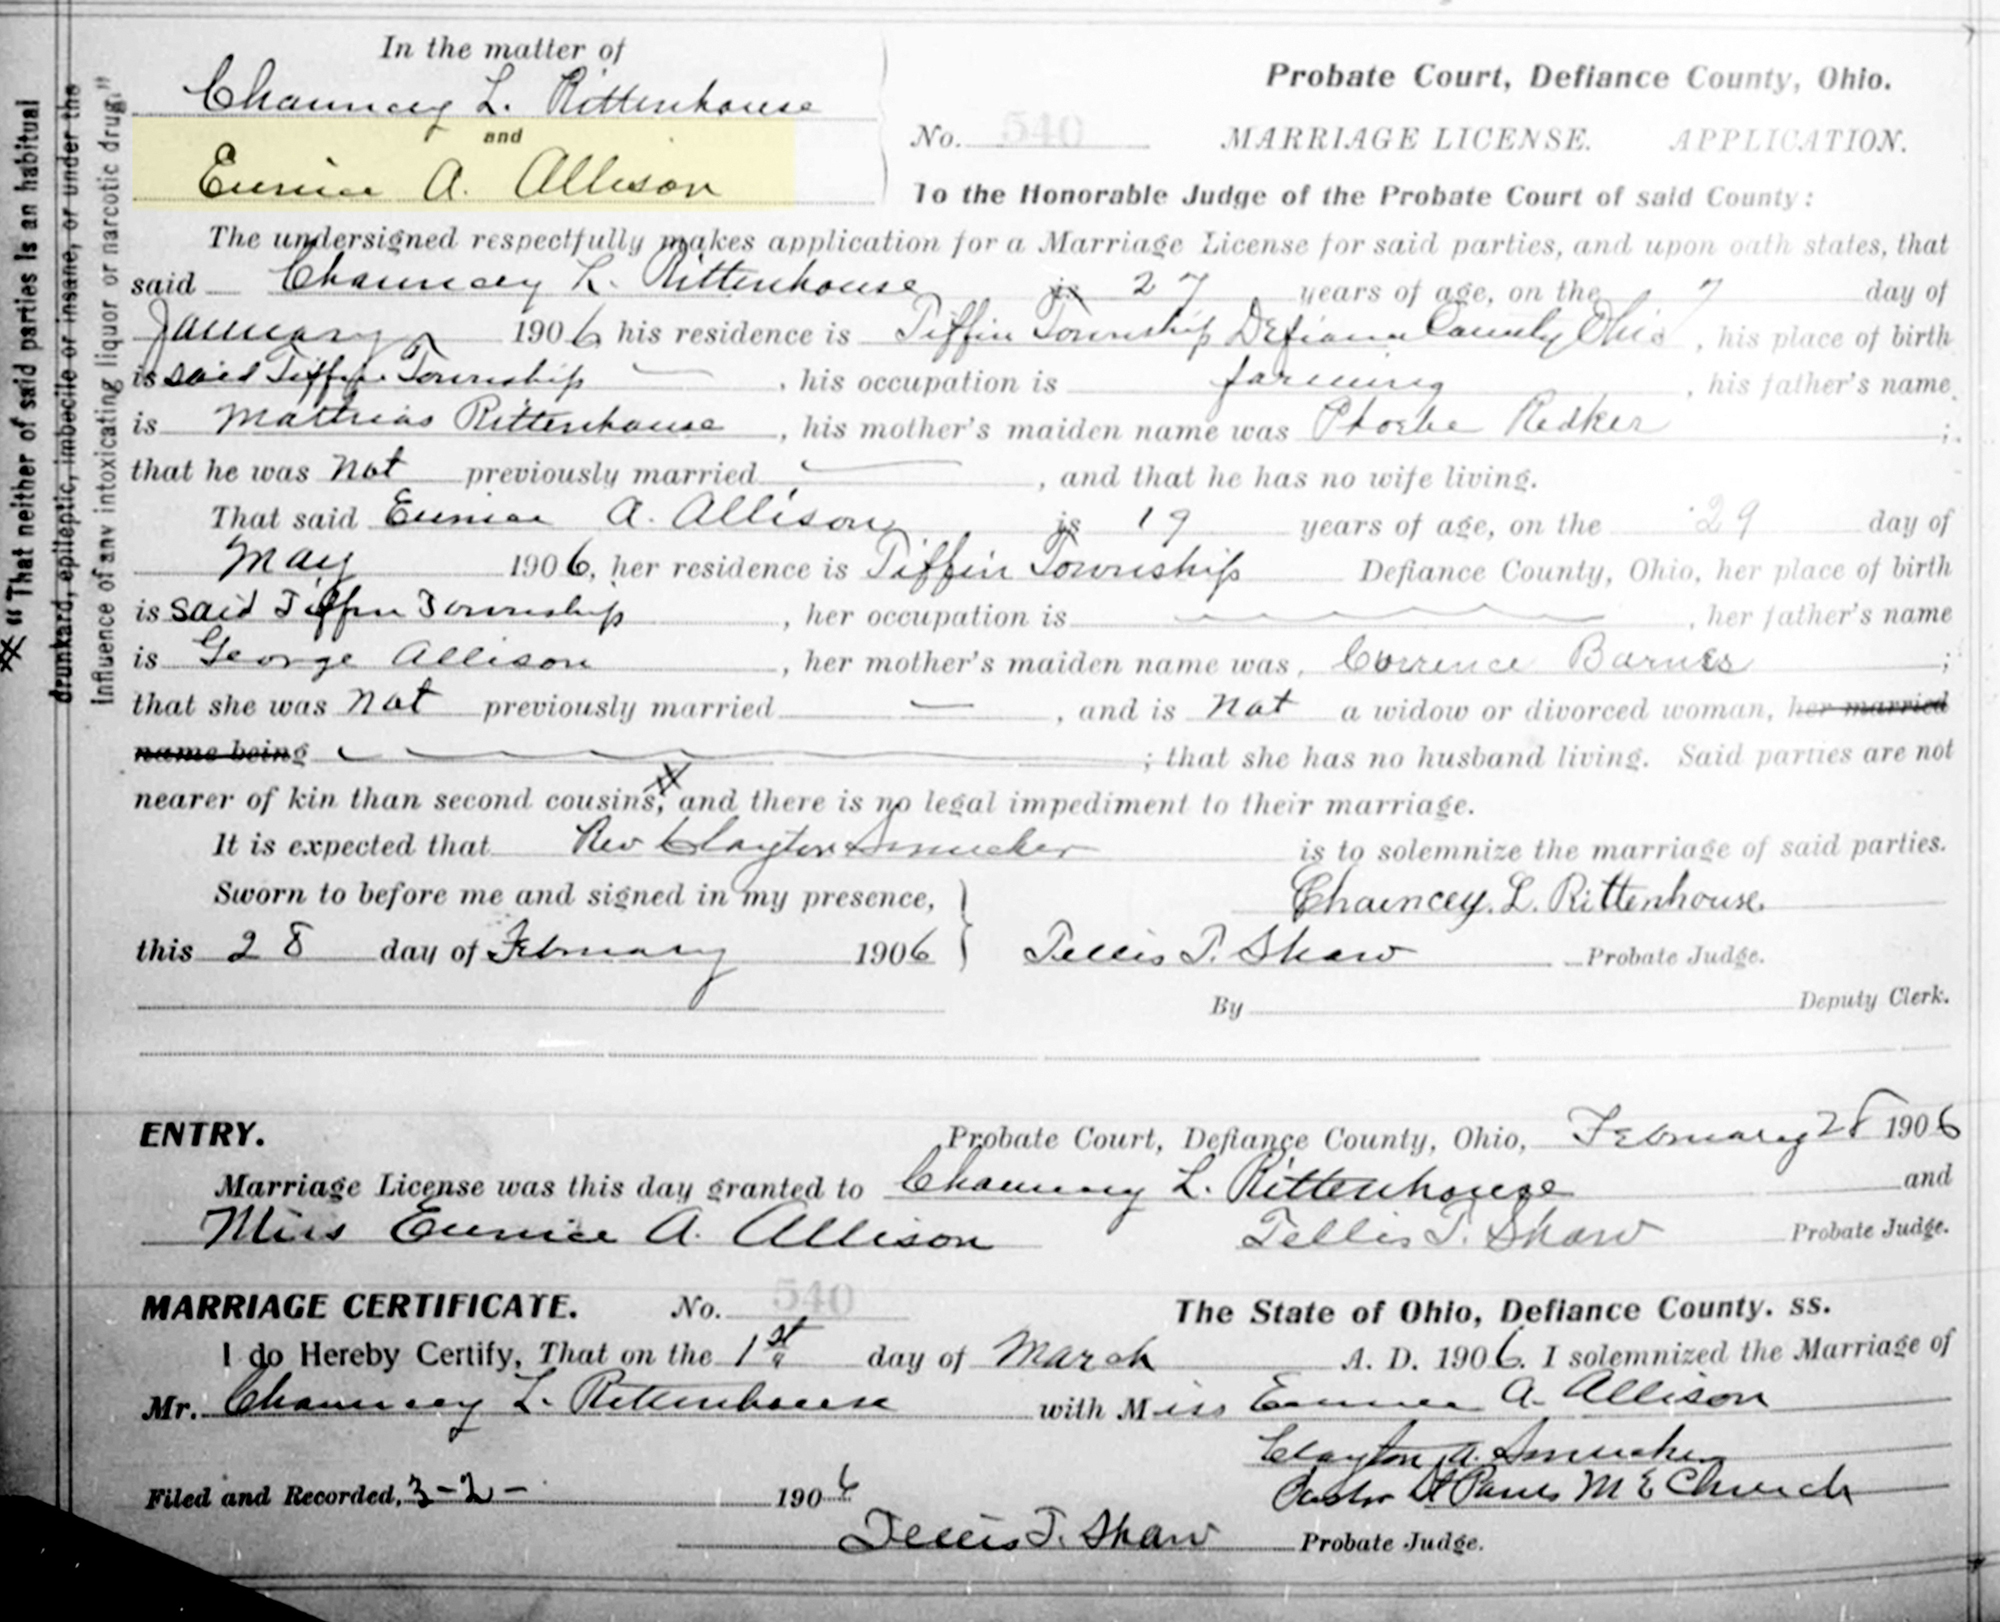 In the matter of
Chauncey L. Rittenhouse
and
Eunice A. Allison
Probate Court, Defiance County, Ohio.
No. 540 MARRIAGE LICENSE. APPLICATION.
To the Honorable Judge of the Probate Court of said County:
The undersigned respectfully makes application for a Marriage License for said parties, and upon oath states, that
said Chauncey L. Rittenhouse is 27 years of age, on the 7 day of
January 1906 his residence is Tiffin Township Defiance County Ohio, his place of birth
is said Tiffin Township, his occupation is farming, his father's name
is Mathias Rittenhouse, his mother's maiden name was Phoebe Redker;
that he was not previously married, and that he has no wife living.
That said Eunice A. Allison is 19 years of age, on the 29 day of
May 1906, her residence is Tiffin Township Defiance County, Ohio, her place of birth
is said Tiffin Township, her occupation is, her father's name
is George Allison, her mother's maiden name was, Correnca Barnes;
that she was not previously married, and is not a widow or divorced woman, her married
name being ; that she has no husband living. Said parties are not
nearer of kin than second cousins, # and there is no legal impediment to their marriage.
It is expected that Rev Clayton Smucker is to solemnize the marriage of said parties.
Sworn to before me and signed in my presence, Chauncey. L. Rittenhouse.
this 28 day of February 1906 Tellis T. Shaw Probate Judge.
By Deputy Clerk.
# "That neither of said parties is an habitual
drunkard, epileptic, imbecile or insane, or under the
influence of any intoxicating liquor or narcotic drug."
ENTRY. Probate Court, Defiance County, Ohio, February 28 1906
Marriage License was this day granted to Chauncey L. Rittenhouse and
Miss Eunice A. Allison Tellis T. Shaw Probate Judge.
MARRIAGE CERTIFICATE. No. 540 The State of Ohio, Defiance County. ss.
I do Hereby Certify, That on the 1st day of March A. D. 1906. I solemnized the Marriage of
Mr. Chauncey L. Rittenhouse with Miss Eunice A. Allison
Clayton A. Smucker
Pastor St Pauls M E Church
Filed and Recorded, 3-2- 1906
Tellis T. Shaw Probate Judge.